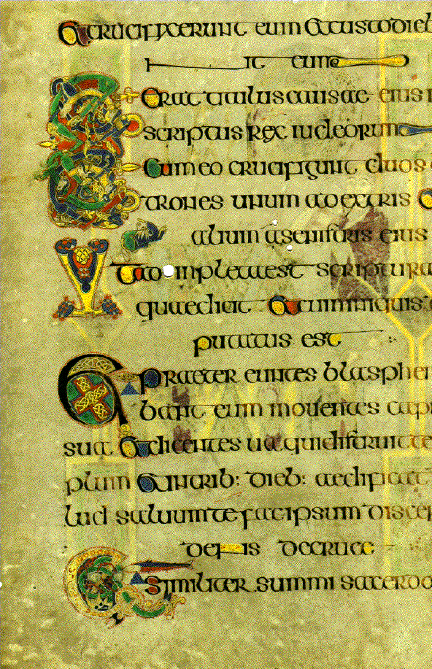 Et crucifixerunt eum et custodieb
ant eum
Et Erat titulus causae eius i
scriptus rex iudeorum
Et Cum eo crucifigunt duos
trones unum a dextris
alium a senistris eius
Et adinpleta est scriptura
quae dicit Et cum iniquis
putatus est
Et Praeter euntes blasphe
bant eum mouentes capi
sua Et dicentes ua qui distruit te
plum Et in trib: dieb: aedificat
saluum te fac ipsum discen
dens de cruce
Similiter summi sacerdo